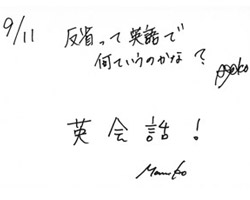 9/11 反省って英語で
何ていうのかな？
英会話！